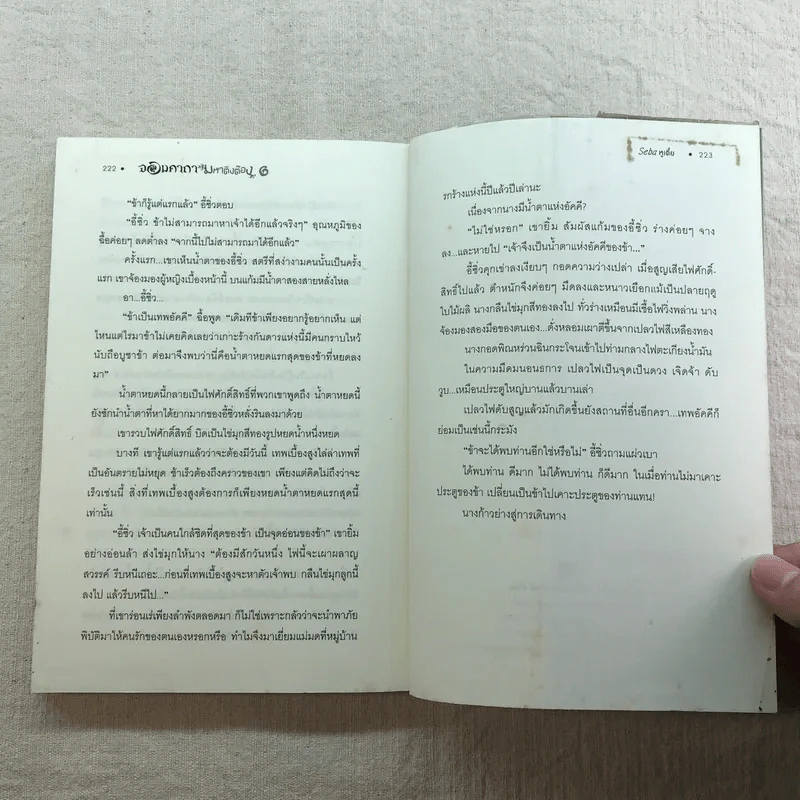 222 •
"ข้าก็รู้แต่แรกแล้ว" อี้ซิ่วตอบ
"อี้ซิ่ว ข้าไม่สามารถมาหาเจ้าได้อีกแล้วจริงๆ" อุณหภูมิของ
ฉื้อค่อยๆ ลดต่ำลง "จากนี้ไปไม่สามารถมาได้อีกแล้ว"
ครั้งแรก...เขาเห็นน้ำตาของอี้ซิ่ว สตรีที่สง่างามคนนั้นเป็นครั้ง
แรก เขาจ้องมองผู้หญิงเบื้องหน้านี้ บนแก้มมีน้ำตาสองสายหลั่งไหล
อา...อี้ซิ่ว...
"ข้าเป็นเทพอัคคี" ฉื้อพูด "เดิมทีข้าเพียงอยากรู้อยากเห็น แต่
ไหนแต่ไรมาข้าไม่เคยคิดเลยว่าเกาะร้างกันดารแห่งนี้มีคนกราบไหว้
นับถือบูชาข้า ต่อมาจึงพบว่านี่คือน้ำตาหยดแรกสุดของข้าที่หยดลง
มา"
น้ำตาหยดนี้กลายเป็นไฟศักดิ์สิทธิ์ที่พวกเขาพูดถึง น้ำตาหยดนี้
ยังชักนำน้ำตาที่หาได้ยากมากของอี้ซิ่วหลั่งรินลงมาด้วย
เขารวบไฟศักดิ์สิทธิ์ บิดเป็นไข่มุกสีทองรูปหยดน้ำหนึ่งหยด
บางที เขารู้แต่แรกแล้วว่าจะต้องมีวันนี้ เทพเบื้องสูงไล่ล่าเทพที่
เป็นอันตรายไม่หยุด ช้าเร็วต้องถึงคราวของเขา เพียงแต่คิดไม่ถึงว่าจะ
เร็วเช่นนี้ สิ่งที่เทพเบื้องสูงต้องการก็เพียงหยดน้ำตาหยดแรกสุดนี้
เท่านั้น
"อี้ซิ่ว เจ้าเป็นคนใกล้ชิดที่สุดของข้า เป็นจุดอ่อนของข้า" เขายิ้ม
อย่างอ่อนล้า ส่งไข่มุกให้นาง "ต้องมีสักวันหนึ่ง ไฟนี้จะเผาผลาญ
สวรรค์ รีบหนีเถอะ...ก่อนที่เทพเบื้องสูงจะหาตัวเจ้าพบ กลืนไข่มุกลูกนี้
ลงไป แล้วรีบหนีไป..."
ที่เขาร่อนเร่เพียงลำพังตลอดมา ก็ไม่ใช่เพราะกลัวว่าจะนำพาภัย
พิบัติมาให้คนรักของตนเองหรอกหรือ ทำไมจึงมาเยี่ยมแม่มดที่หมู่บ้าน
Seba หูเตี๋ย • 223
รกร้างแห่งนี้ปีแล้วปีเล่านะ
เนื่องจากนางมีน้ำตาแห่งอัคคี?
"ไม่ใช่หรอก" เขายิ้ม สัมผัสแก้มของอี้ซิ่ว ร่างค่อยๆ จาง
ลง...และหายไป "เจ้าจึงเป็นน้ำตาแห่งอัคคีของข้า..."
อี้ซิ่วคุกเข่าลงเงียบๆ กอดความว่างเปล่า เมื่อสูญเสียไฟศักดิ์-
สิทธิ์ไปแล้ว ตำหนักจึงค่อยๆ มืดลงและหนาวเยือกแม้เป็นปลายฤดู
ใบไม้ผลิ นางกลืนไข่มุกสีทองลงไป ทั่วร่างเหมือนมีเชื้อไฟวิ่งพล่าน นาง
จ้องมองสองมือของตนเอง...ดั่งหลอมเผาตีขึ้นจากเปลวไฟสีเหลืองทอง
นางกอดพิณหร่วนฉินกระโจนเข้าไปท่ามกลางไฟตะเกียงน้ำมัน
ในความมืดมนอนธการ เปลวไฟเป็นจุดเป็นดวง เจิดจ้า ดับ
วูบ...เหมือนประตูใหญ่บานแล้วบานเล่า
เปลวไฟดับสูญแล้วมักเกิดขึ้นยังสถานที่อื่นอีกครา...เทพอัคคีก็
ย่อมเป็นเช่นนี้กระมัง
"ข้าจะได้พบท่านอีกใช่หรือไม่" อี้ซิ่วถามแผ่วเบา
ได้พบท่าน ดีมาก ไม่ได้พบท่าน ก็ดีมาก ในเมื่อท่านไม่มาเคาะ
ประตูของข้า เปลี่ยนเป็นข้าไปเคาะประตูของท่านแทน!
นางก้าวย่างสู่การเดินทาง